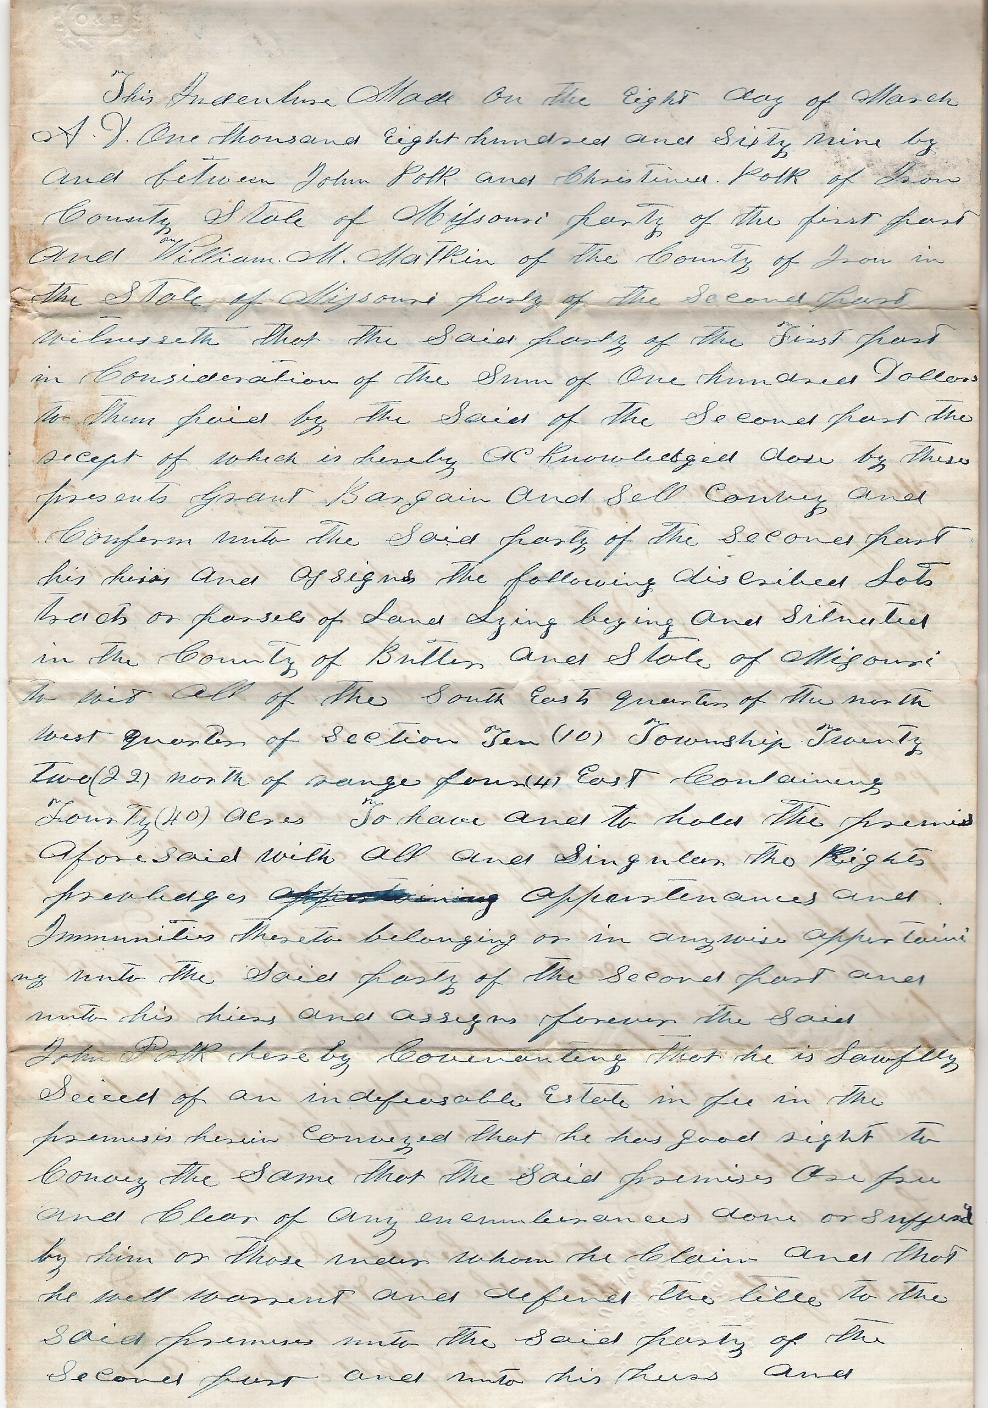 O & H
This Indenture Made on the Eight day of March
A. D. One thousand Eight hundred and Sixty nine by
and between John Polk and Christina Polk of Iron
County State of Missouri party of the first part
and William M. Matkin of the County of Iron in
the State of Missouri party of the Second part
witnesseth that the Said party of the First part
in Consideration of the Sum of One hundred Dollars
to them paid by the Said of the Second part the
recept of which is hereby Acknowledged dose by these
presents Grant Bargain And Sell Convey and
Conferm unto the Said party of the Second part
his hiers And Assigns the following discribed Lots
tracts or parsels of Land Lying beying And Situated
in the County of Butler And State of Missouri
to wit All of the South East quarter of the north
west quarter of Section Ten (10) Township Twenty
two (22) north of range four (4) East Containing
Fourty (40) Acres To have and to hold the premis
Aforesaid with All and Singular the Rights
previledges appertaining appurtenances and
Immunities thereto belonging or in anywise appertaini
ng unto the Said party of the Second part and
unto his hiers and assigns forever the Said
John Polk hereby Covenanting that he is Lawflly
Seiced of an indefeasable Estate in fee in the
premises herein Conveyed that he has good right to
Convey the Same that the Said premises Are free
and Clear of any encumberances done or Suffered
by him or those under whom he Claim And that
he well warrent and defend the title to the
Said premises unto the Said party of the
Second part and unto his hiers And